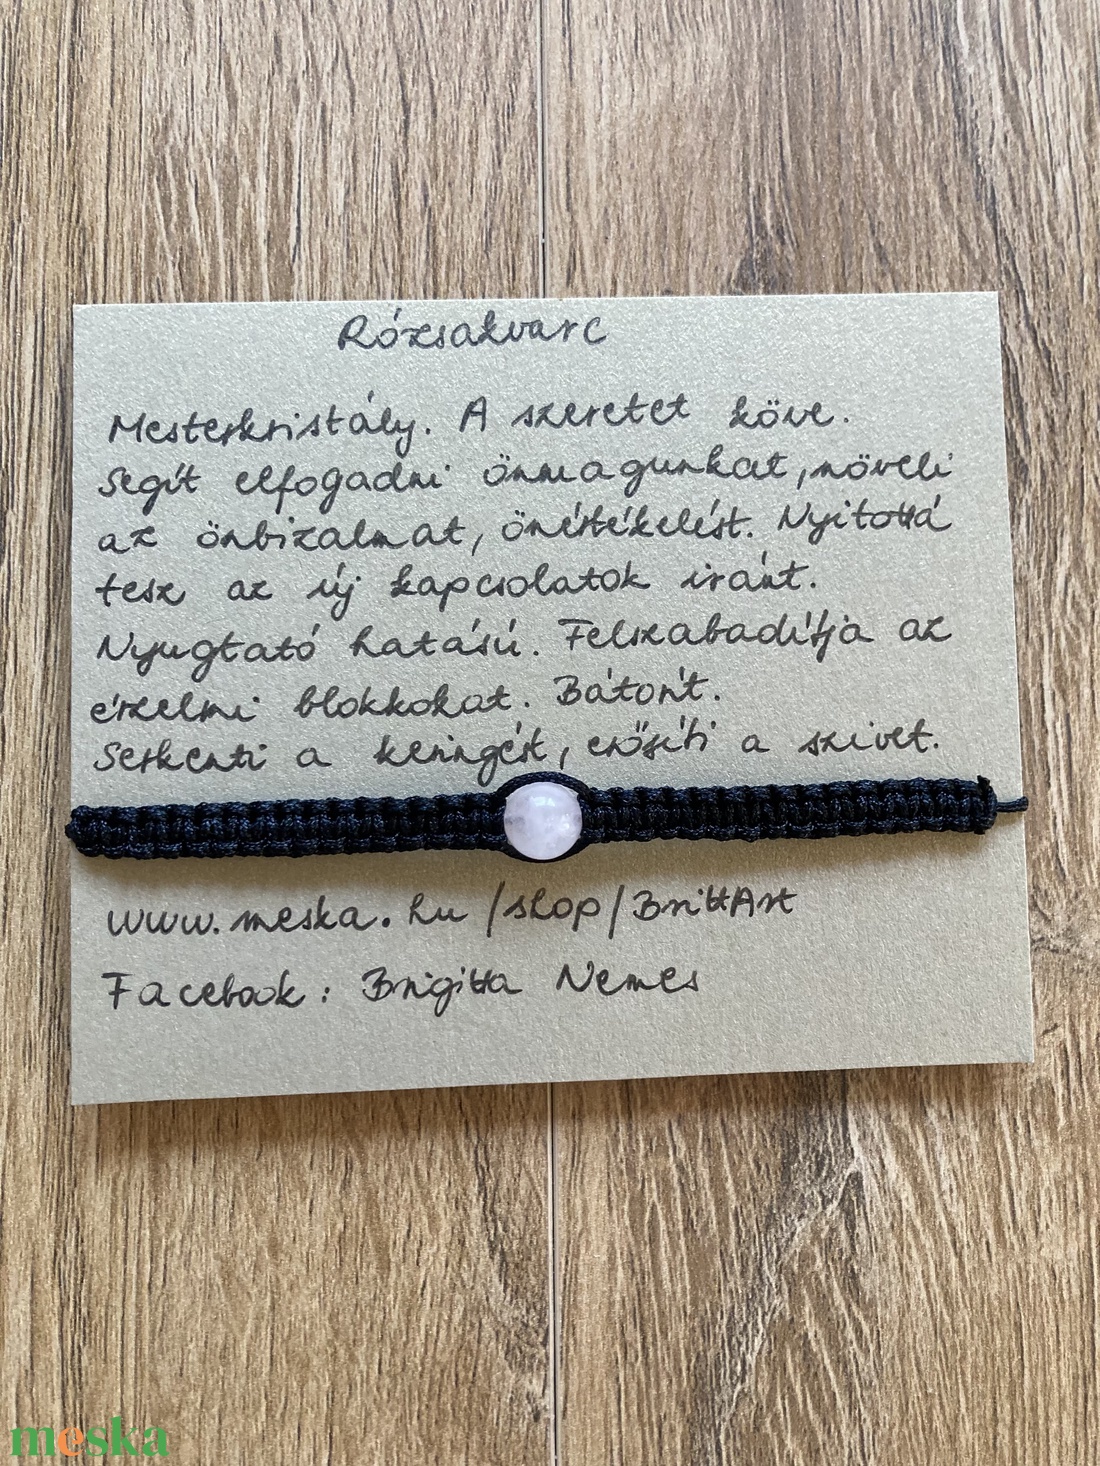 Rózsakvarc
Mesterkristály. A szeretet köve.
Segít elfogadni önmagunkat, növeli
az önbizalmat, önértékelést. Nyitottá
tesz az új kapcsolatok iránt.
Nyugtató hatású. Felszabadítja az
érzelmi blokkokat. Bátorít.
Serkenti a keringést, erősíti a szívet.
www.meska.hu/shop/BrittArt
Facebook: Brigitta Nemes
meska